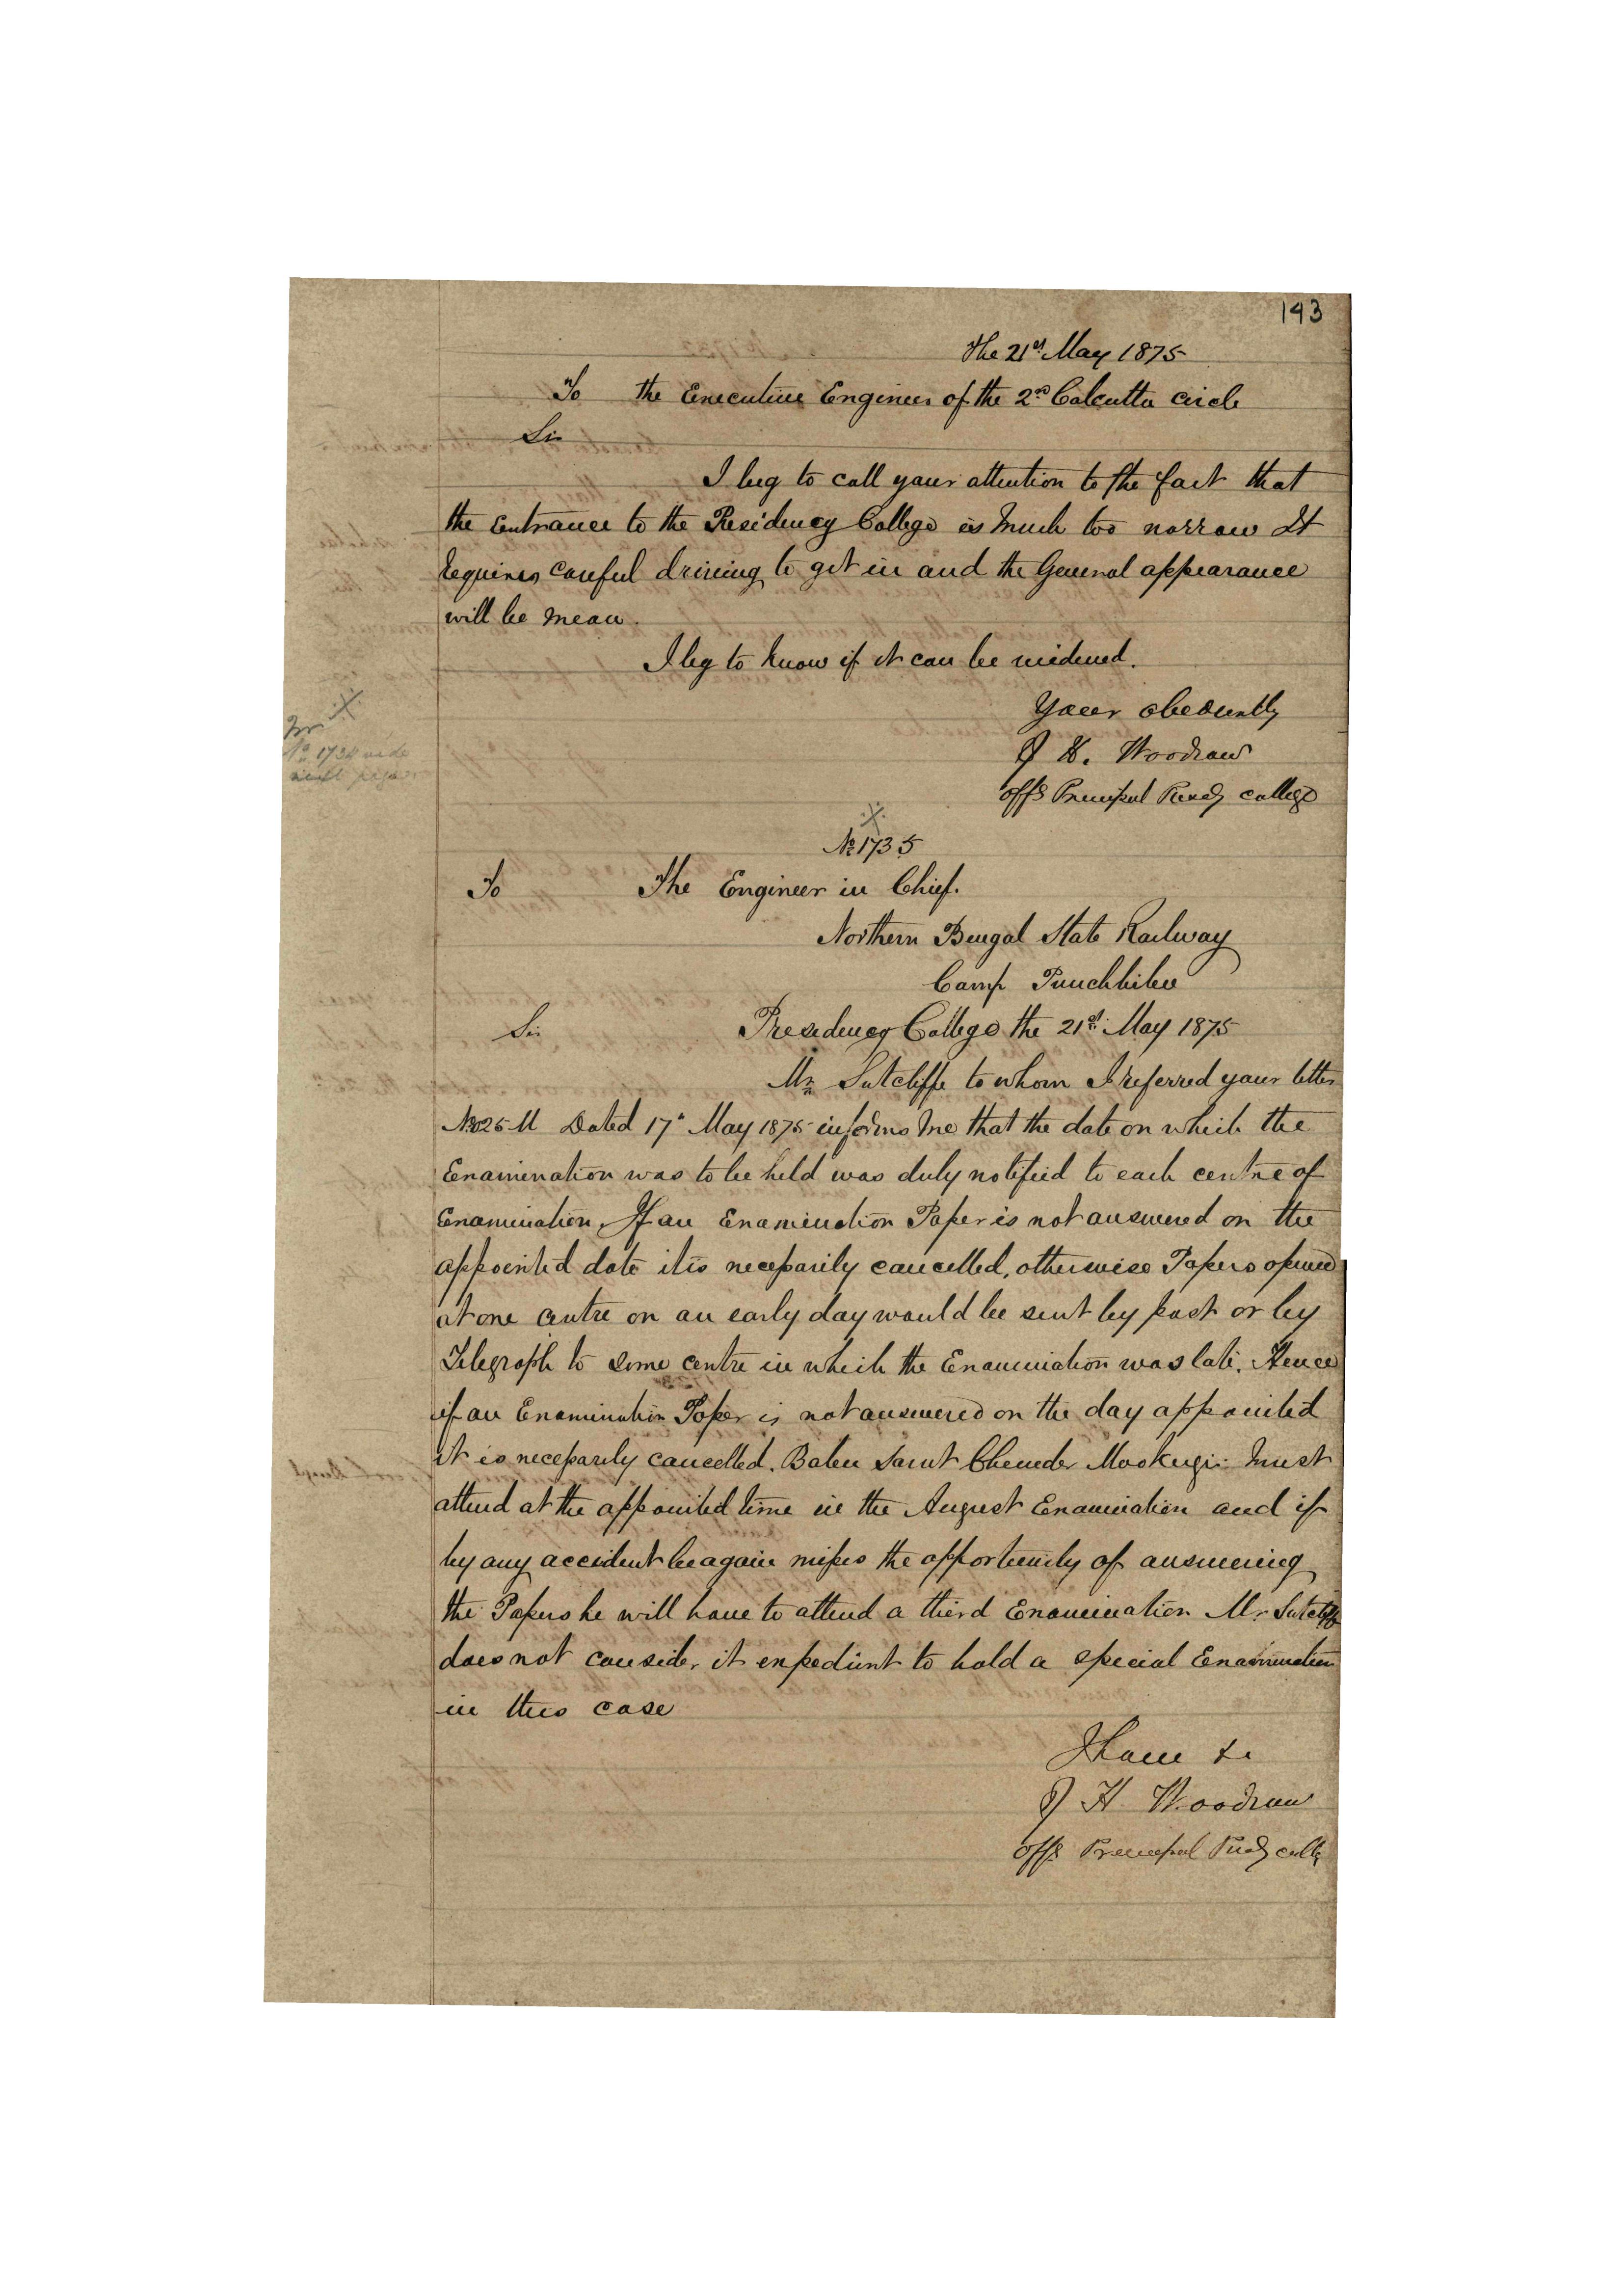 143
The 21st May 1875
To the Executive Engineer of the 2nd Calcutta circle
Sir
I beg to call your attention to the fact that
the Entrance to the Presidency College is much too narrow It
requires careful driving to get in and the General appearance
will be mean.
I beg to know if it can be widened.
Your obediently
J H. Woodrow
Offg Principal Presdy college
For
No. 1734 vide
next page
No 1735
To The Engineer in Chief.
Northern Bengal State Railway
Camp
Sir Presidency College the 21st May 1875
Mr Sutcliffe to whom I referred your letter
Dated 17th May 1875 informs me that the date on which the
Examination was to be held was duly notified to each centre of
Examination, If an Examination Paper is not answered on the
appointed date it is necessarily cancelled, otherwise Papers opened
at one centre on an early day would be sent by post or by
Telegraph to some centre in which the Examination was late. Hence
if an Examination Paper is not answered on the day appointed
it is necessarily cancelled. Baboo Chunder Mookerji must
attend at the appointed time in the August Examination and if
by any accident he again misses the opportunity of answering
the Papers he will have to attend a third Examination Mr Sutcliffe
does not consider it expedient to hold a special Examination
in this case
I have &c
J H Woodrow
Offg Principal Presdy colle